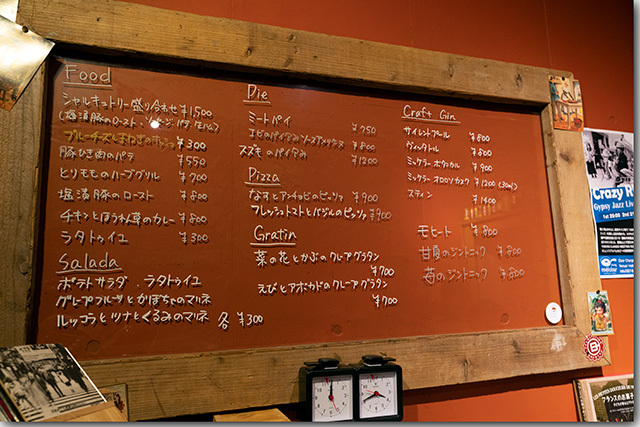 Food
シャルキュトリー盛り合わせ ¥1,500
ブルーチーズと ¥300
豚ひき肉のパテ ¥550
とりモモのハーブグリル ¥700
塩漬豚のロースト ¥800
チキンとほうれん草のカレー ¥800
ラタトゥイユ ¥300
Salada
ポテトサラダ . ラタトゥイユ
グレープフルーツとかぼちゃのマリネ
ルッコラとツナとくるみのマリネ 各 ¥300
Pie
ミートパイ ¥750
エビのパイ包み ソースアメリケーヌ ¥800
スズキのパイ包み ¥1200
Pizza
なすとアンチョビのピッツァ ¥900
フレッシュトマトとバジルのピッツァ ¥900
Gratin
菜の花とかぶのクレープグラタン
¥700
えびとアボカドのクレープグラタン
¥700
Craft Gin
サイレントプール ¥800
¥800
ミュックラー ¥900
ミュックラー オロロソカスク ¥1200 (30ml)
スティン ¥1400
モヒート ¥800
甘夏のジントニック ¥800
苺のジントニック ¥800
Crazy R
Gypsy Jazz Live
フランスのお菓子